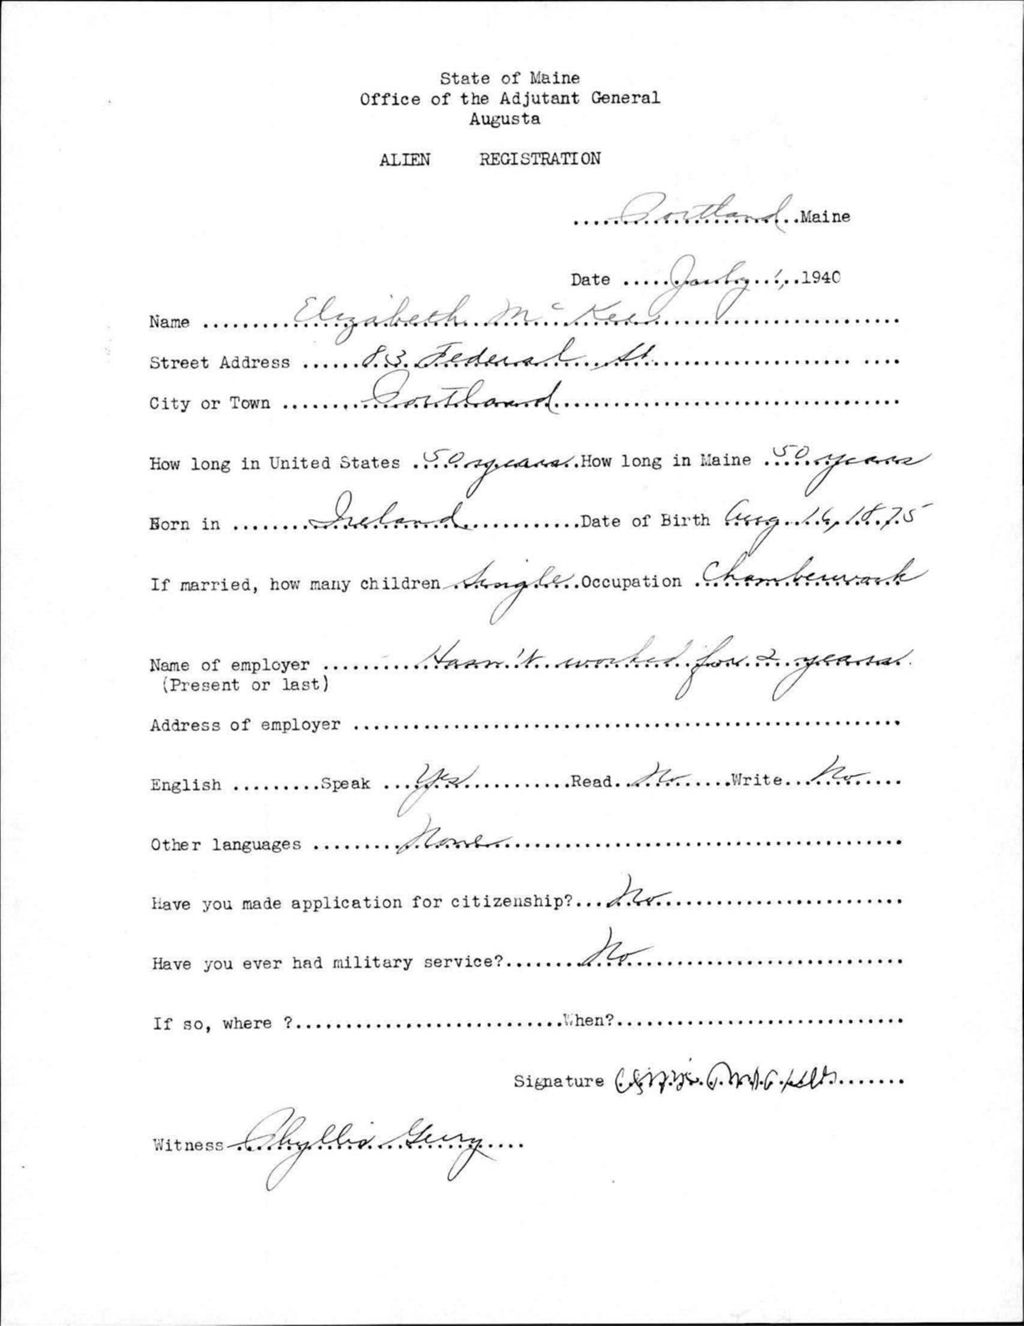 State of Maine
Office of the Adjutant General
Augusta
ALIEN REGISTRATION
.....Portland..Maine
Date .....July 1,..1940
Name ..........Elizabeth McKee..........
Street Address ......83 Federal St............. ....
City or Town ........Portland..........
How long in United States .50 years.How long in Maine .50 years
Born in ........Ireland............Date of Birth Aug. 16, 1875
If married, how many children Single..Occupation .Chamberwork
Name of employer ..........Hasn't worked for 2 years.
(Present or last)
Address of employer ..........
English .........Speak ...Yes............Read..No......Write..No.....
Other languages .........None..........
Have you made application for citizenship?...No..........
Have you ever had military service?........No..........
If so, where ?..........When?..........
Signature ........
Witness Phyllis Geery....